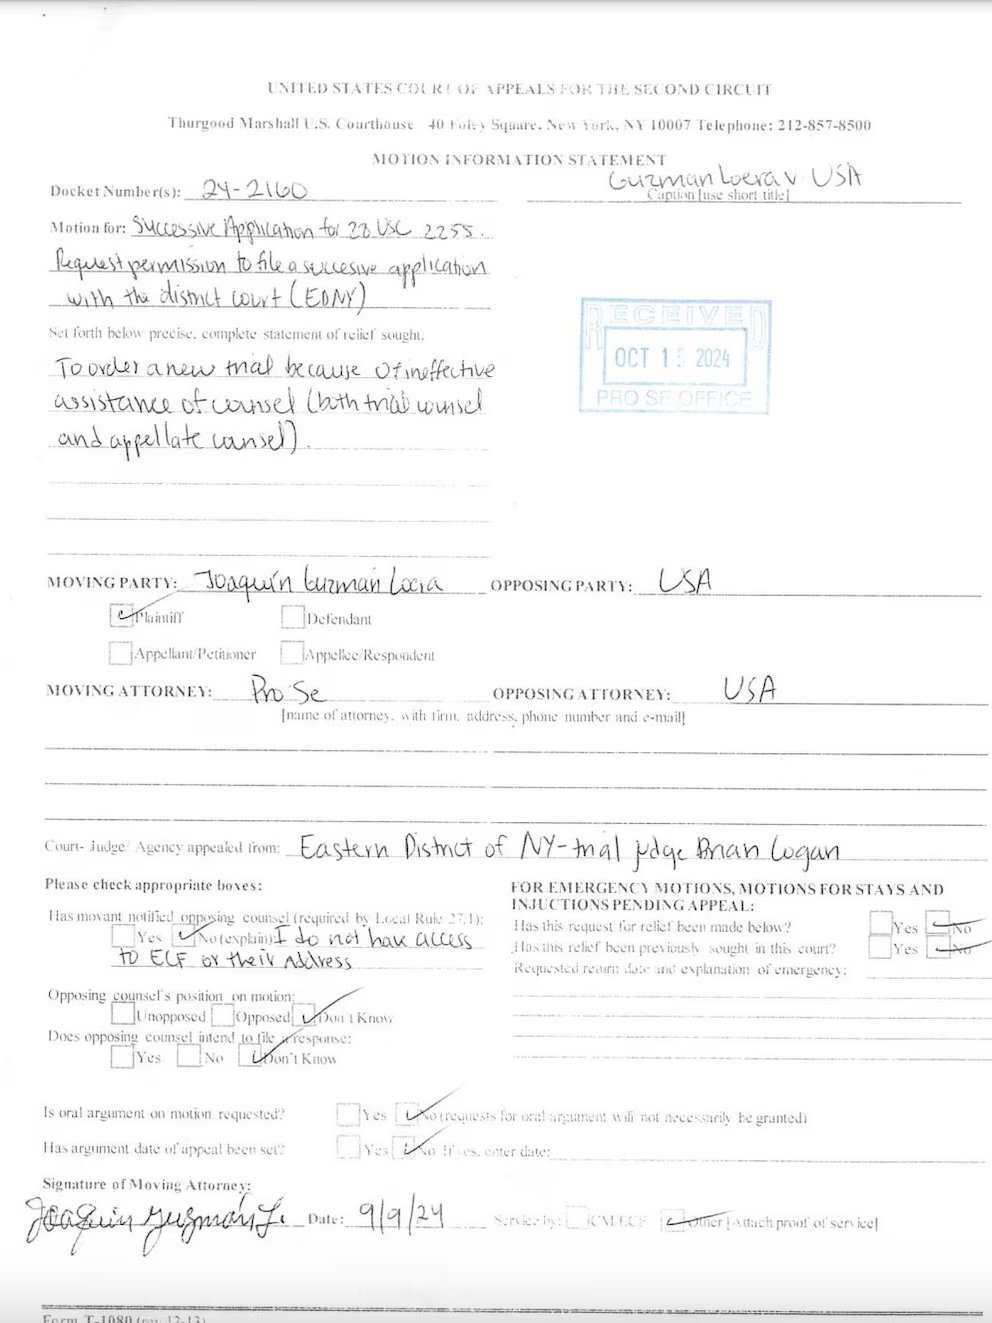 UNITED STATES COURT OF APPEALS FOR THE SECOND CIRCUIT
Thurgood Marshall U.S. Courthouse 40 Foley Square, New York, NY 10007 Telephone: 212-857-8500
MOTION INFORMATION STATEMENT
Docket Number(s): 24-2160
Guzman Loera v USA
Caption [use short title]
Motion for: Successive Application for 28 USC 2255.
Request permission to file a succesive application
with the district court (EDNY)
Set forth below precise, complete statement of relief sought:
To order a new trial because of ineffective
assistance of counsel (both trial counsel
and appellate counsel).
RECEIVED
OCT 15 2024
PRO SE OFFICE
MOVING PARTY: Joaquín Guzmán Loera OPPOSING PARTY: USA
Plaintiff Defendant
Appellant/Petitioner Appellee/Respondent
MOVING ATTORNEY: Pro Se OPPOSING ATTORNEY: USA
[name of attorney, with firm, address, phone number and e-mail]
Court- Judge/ Agency appealed from: Eastern District of NY-trial judge Brian Cogan
Please check appropriate boxes:
Has movant notified opposing counsel (required by Local Rule 27.1):
Yes No (explain): I do not have access
to ECF or their Address
Opposing counsel's position on motion:
Unopposed Opposed Don't Know
Does opposing counsel intend to file a response:
Yes No Don't Know
FOR EMERGENCY MOTIONS, MOTIONS FOR STAYS AND
INJUCTIONS PENDING APPEAL:
Has this request for relief been made below? Yes No
Has this relief been previously sought in this court? Yes No
Requested return date and explanation of emergency:
Is oral argument on motion requested? Yes No (requests for oral argument will not necessarily be granted)
Has argument date of appeal been set? Yes No If yes, enter date:
Signature of Moving Attorney:
Joaquin Guzmán L. Date: 9/9/24 Service by: CM/ECF Other [Attach proof of service]
Form T-1080 (rev. 12-13)